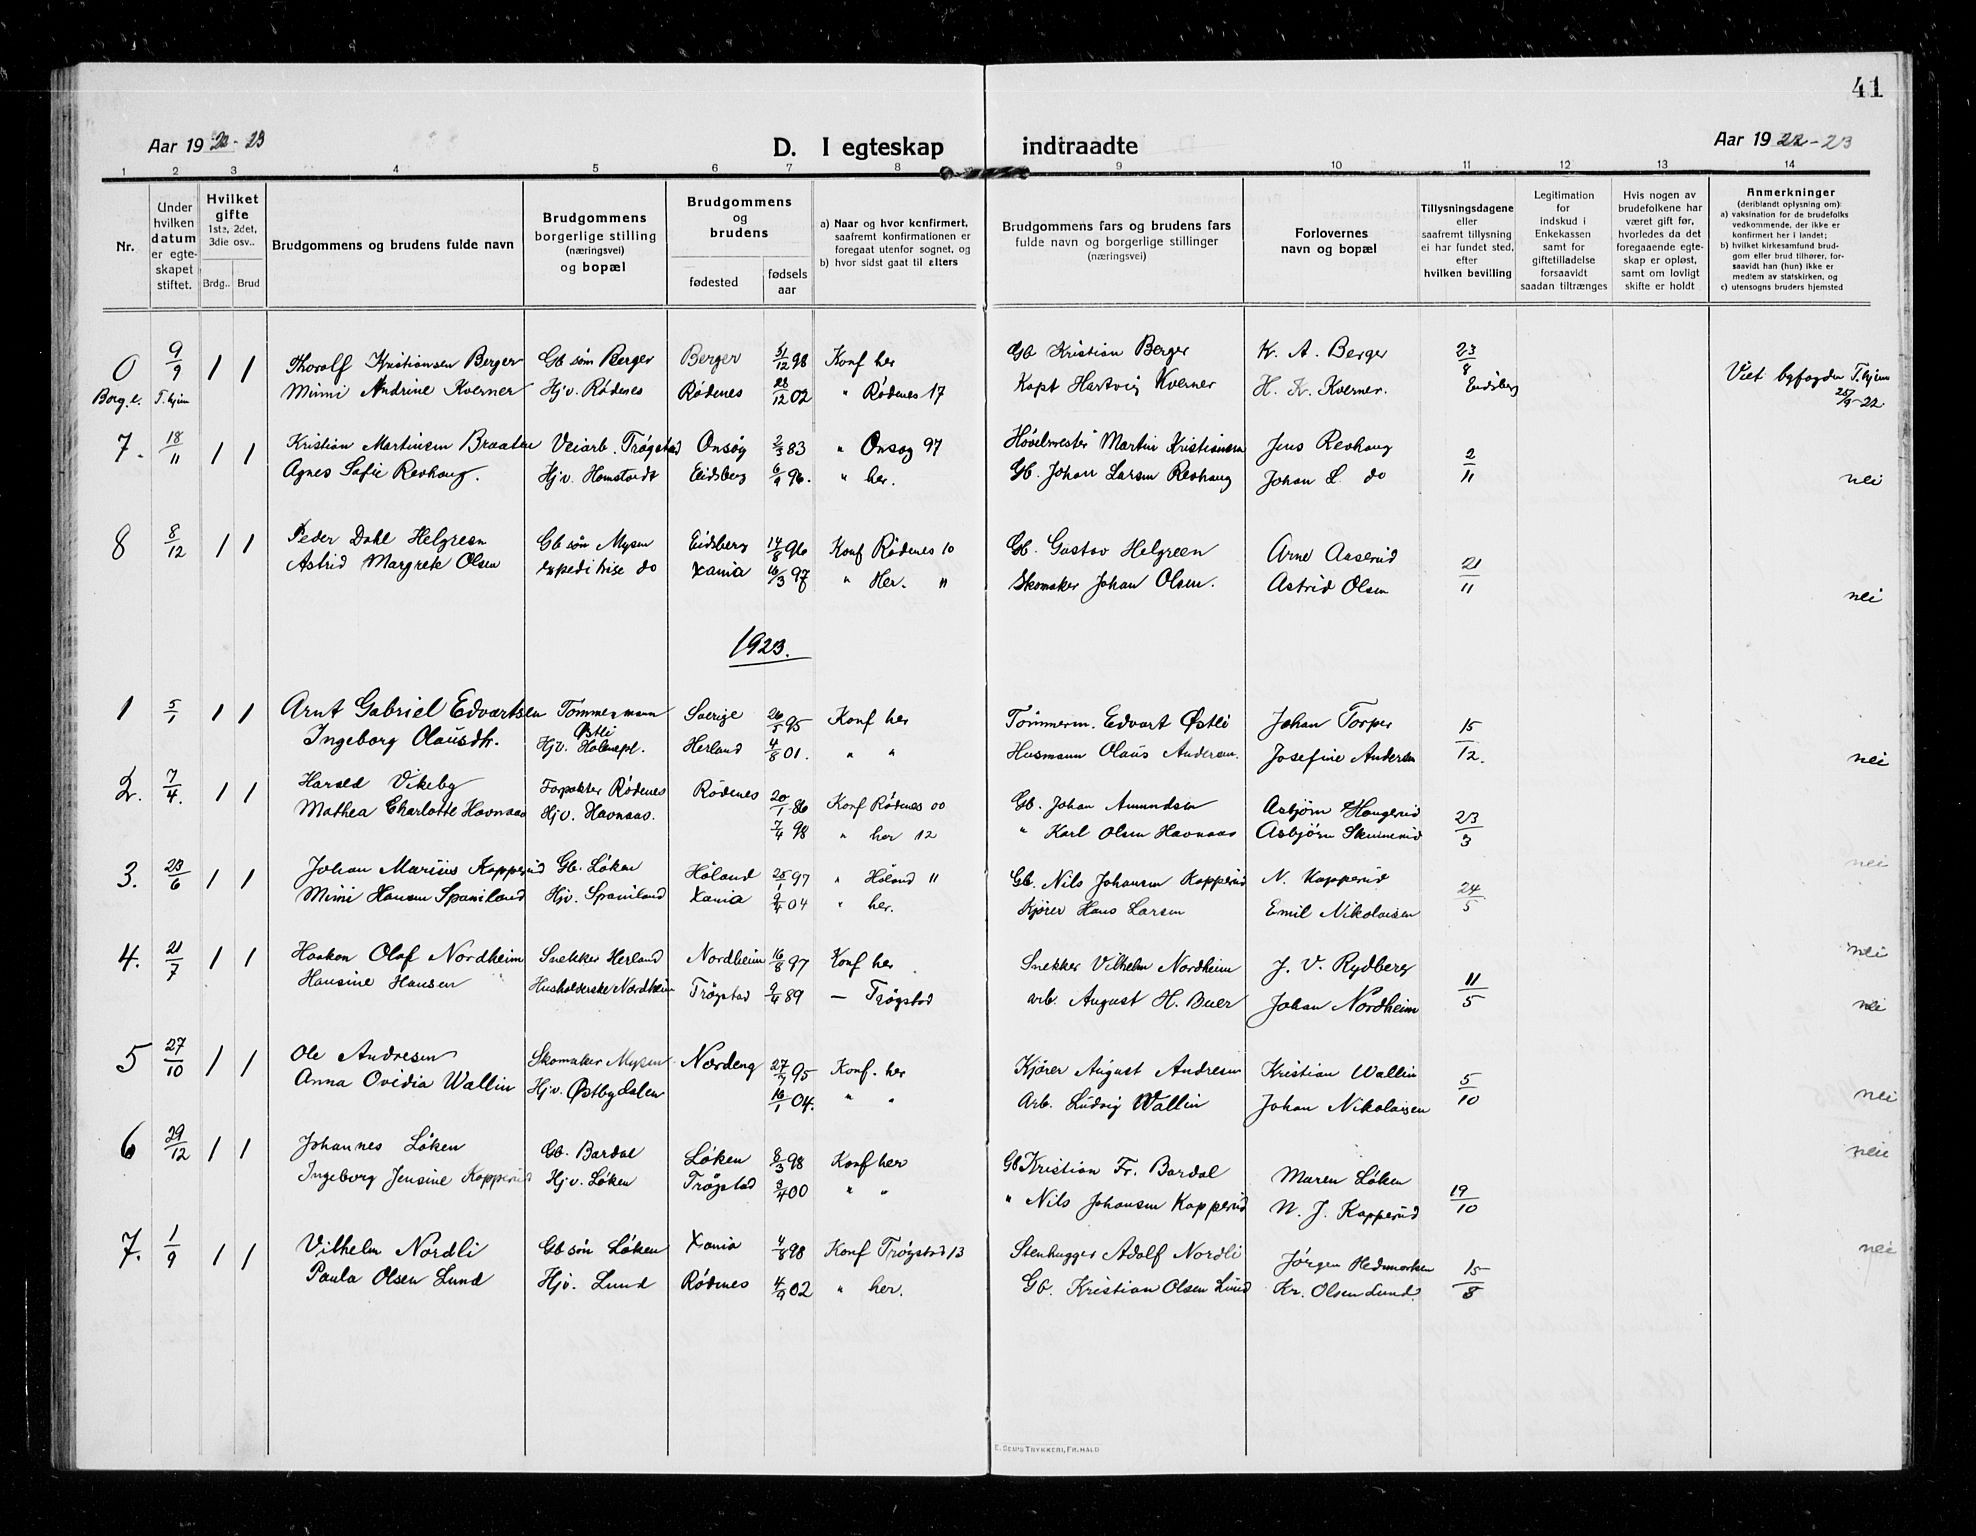 41
Aar 1922-23 D. I egteskap indtraadte Aar 1922-23
1 2 3 4 5 6 7 8 9 10 11 12 13 14
Nr.
Under hvilken datum er egteskapet stiftet.
Hvilket gifte 1ste, 2det, 3die osv..
Brdg.. Brud
Brudgommens og brudens fulde navn
Brudgommens borgerlige stilling (næringsvei) og bopæl
Brudgommens og brudens
fødested fødsels aar
a) Naar og hvor konfirmert, saafremt konfirmationen er foregaat utenfor sognet, og
b) hvor sidst gaat til alters
Brudgommens fars og brudens fars fulde navn og borgerlige stillinger (næringsvei)
Forlovernes navn og bopæl
Tillysningsdagene eller saafremt tillysning ei har fundet sted, efter hvilken bevilling
Legitimation for indskud i Enkekassen samt for giftetilladelse forsaavidt saadan tiltrænges
Hvis nogen av brudefolkene har været gift før, hvorledes da det foregaaende egteskap er opløst, samt om lovligt skifte er holdt
Anmerkninger (deriblandt oplysning om):
a) vaksination for de brudefolks vedkommende, der ikke er konfirmert her i landet;
b) hvilket kirkesamfund brudgom eller brud tilhører, forsaavidt han (hun) ikke er medlem av statskirken, og
c) utensogns bruders hjemsted
0 9/9 1 1 Thorolf Kristiansen Berger Gb søn Berger Berger 31/12 98 Konf her Gb Kristian Berger K. A. Berger 23/8 Viet byfogden T.hjem
Borg.e. T.hjem Mimi Andrine Kverner Hjv. Rødenes Rødenes 28/12 02 " Rødenes 17 Kapt Hartvig Kverner H. Kr. Kverner. Eidsberg 25/9-22.
7. 18/11 1 1 Kristian Martinsen Braaten Veiarb. Trøgstad Onsøy 2/3 83 " Onsøy 97 Høvelmester Martin Kristiansen Jens Revhaug 2/11
Agnes Sofie Revhaug. Hjv. Homstvedt Eidsberg 6/9 96. " her. Gb. Johan Larsen Revhaug Johan L. do nei
8 8/12 1 1 Peder Dahl Helgreen Gb søn Mysen Eidsberg 14/8 96 Konf Rødenes 10 Gb. Gustav Helgreen Arne Aaserud 21/11
Astrid Margrete Olsen expeditrise do Xania 16/3 97 " Her. 11 Skomaker Johan Olsen. Astrid Olsen nei
1923.
1 5/1 1 1 Arnt Gabriel Edvartsen Tømmermann Østli Sverige 26/5 95 Konf her Tømmerm. Edvart Østli Johan Torper 15/12.
Ingeborg Olausdtr. Hjv. Holmepl. Herland 4/8 01. " " Husmann Olaus Andersen. Josefine Andersen nei
2. 7/4. 1 1 Harald Vikeby Forpakter Rødenes Rødenes 20/1 86 Konf Rødenes 00 Gb. Johan Amundsen Asbjørn Haugerud 23/3
Mathea Charlotte Havnaas Hjv. Havnaas. 7/4 98 " her 12 " Karl Olsen Havnaas Asbjørn Skinnerud
nei
3. 23/6 1 1 Johan Marius Kopperud Gb. Løken Høland 25/1 97 " Høland 11 Gb. Nils Johansen Kopperud N. Kopperud 24/5
Mimi Hansen Spaniland Hjv. Spaniland Xania 9/4 04 " her. Kjører Hans Larsen Emil Nikolaisen
nei
4. 21/7 1 1 Haakon Olaf Nordheim Snekker Herland Nordheim 16/8 97 Konf her Snekker Vilhelm Nordheim J. V. Rydberg 11/5
Hansine Hansen Husholderske Nordheim Trøgstad 9/4 89 — Trøgstad arb. August H. Buer Johan Nordheim nei
5 27/10 1 1 Ole Andresen Skomaker Mysen Nordeng 27/7 95 Konf. her Kjører August Andresen Kristian Wallin 5/10
Anna Ovidia Wallin Hjv. Østbydalen 16/1 04. " " Arb. Ludvig Wallin Johan Nikolaisen nei
6 29/12 1 1 Johannes Løken Gb. Bardal Løken 8/3 98 Konf her Gb Kristian Fr. Bardal Maren Løken 19/10 nei
Ingeborg Jensine Kopperud Hjv. Løken Trøgstad 3/4 00 " " " Nils Johansen Kopperud N. J. Kopperud
7. 1/9 1 1 Vilhelm Nordli Gb søn Løken Xania 4/8 98 Konf Trøgstad 13 Stenhugger Adolf Nordli Jørgen Hedmarken 15/8 nei
Paula Olsen Lund Hjv. Lund Rødenes 4/9 02 " her. Gb. Kristian Olsen Lund Kr. Olsen Lund.
E. SEM'S TRYKKERI, FR.HALD